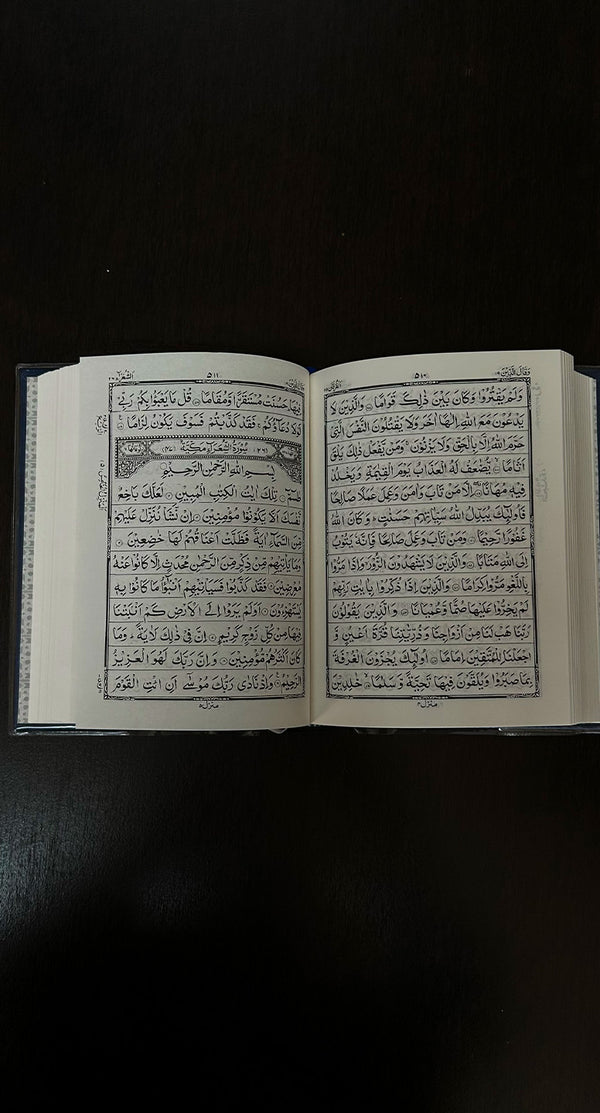 وَقَالَ الَّذِيْنَ ١٩
٥١٠
الْفُرْقَان ٢٥
وَلَمْ يَقْتُرُوْا وَكَانَ بَيْنَ ذٰلِكَ قَوَامًا وَالَّذِيْنَ لَا
يَدْعُوْنَ مَعَ اللّٰهِ اِلٰهًا اٰخَرَ وَلَا يَقْتُلُوْنَ النَّفْسَ الَّتِيْ
حَرَّمَ اللّٰهُ اِلَّا بِالْحَقِّ وَلَا يَزْنُوْنَ وَمَنْ يَّفْعَلْ ذٰلِكَ يَلْقَ
اَثَامًا يُّضٰعَفْ لَهُ الْعَذَابُ يَوْمَ الْقِيٰمَةِ وَيَخْلُدْ
فِيْهٖ مُهَانًا اِلَّا مَنْ تَابَ وَاٰمَنَ وَعَمِلَ عَمَلًا صَالِحًا
فَاُولٰٓئِكَ يُبَدِّلُ اللّٰهُ سَيِّاٰتِهِمْ حَسَنٰتٍ وَكَانَ اللّٰهُ
غَفُوْرًا رَّحِيْمًا وَمَنْ تَابَ وَعَمِلَ صَالِحًا فَاِنَّهٗ يَتُوْبُ
اِلَى اللّٰهِ مَتَابًا وَالَّذِيْنَ لَا يَشْهَدُوْنَ الزُّوْرَ وَاِذَا مَرُّوْا
بِاللَّغْوِ مَرُّوْا كِرَامًا وَالَّذِيْنَ اِذَا ذُكِّرُوْا بِاٰيٰتِ رَبِّهِمْ
لَمْ يَخِرُّوْا عَلَيْهَا صُمًّا وَّعُمْيَانًا وَالَّذِيْنَ يَقُوْلُوْنَ
رَبَّنَا هَبْ لَنَا مِنْ اَزْوَاجِنَا وَذُرِّيّٰتِنَا قُرَّةَ اَعْيُنٍ وَّ
اجْعَلْنَا لِلْمُتَّقِيْنَ اِمَامًا اُولٰٓئِكَ يُجْزَوْنَ الْغُرْفَةَ
بِمَا صَبَرُوْا وَيُلَقَّوْنَ فِيْهَا تَحِيَّةً وَّسَلٰمًا خٰلِدِيْنَ
منزل ٤
٥١١
الشُّعَرَآء ٢٦
فِيْهَا حَسُنَتْ مُسْتَقَرًّا وَّمُقَامًا قُلْ مَا يَعْبَؤُا بِكُمْ رَبِّيْ
لَوْلَا دُعَآؤُكُمْ فَقَدْ كَذَّبْتُمْ فَسَوْفَ يَكُوْنُ لِزَامًا
(٢٦) سُوْرَةُ الشُّعَرَآءِ مَكِّيَّةٌ (٤٧)
بِسْمِ اللّٰهِ الرَّحْمٰنِ الرَّحِيْمِ
طٰسٓمّٓ تِلْكَ اٰيٰتُ الْكِتٰبِ الْمُبِيْنِ لَعَلَّكَ بَاخِعٌ
نَّفْسَكَ اَلَّا يَكُوْنُوْا مُؤْمِنِيْنَ اِنْ نَّشَاْ نُنَزِّلْ عَلَيْهِمْ
مِّنَ السَّمَآءِ اٰيَةً فَظَلَّتْ اَعْنَاقُهُمْ لَهَا خٰضِعِيْنَ
وَمَا يَاْتِيْهِمْ مِّنْ ذِكْرٍ مِّنَ الرَّحْمٰنِ مُحْدَثٍ اِلَّا كَانُوْا عَنْهُ
مُعْرِضِيْنَ فَقَدْ كَذَّبُوْا فَسَيَاْتِيْهِمْ اَنْبٰٓؤُا مَا كَانُوْا بِهٖ
يَسْتَهْزِءُوْنَ اَوَلَمْ يَرَوْا اِلَى الْاَرْضِ كَمْ اَنْۢبَتْنَا
فِيْهَا مِنْ كُلِّ زَوْجٍ كَرِيْمٍ اِنَّ فِيْ ذٰلِكَ لَاٰيَةً وَمَا
كَانَ اَكْثَرُهُمْ مُّؤْمِنِيْنَ وَاِنَّ رَبَّكَ لَهُوَ الْعَزِيْزُ
الرَّحِيْمُ وَاِذْ نَادٰى رَبُّكَ مُوْسٰٓى اَنِ ائْتِ الْقَوْمَ
منزل ٥